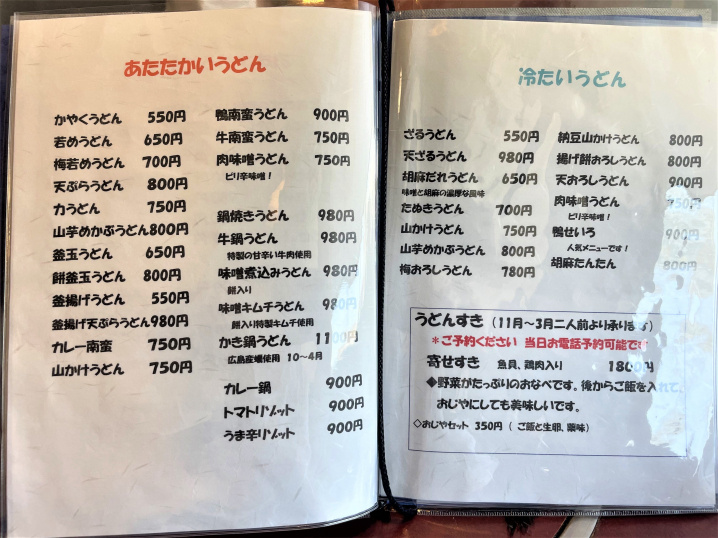 あたたかいうどん
かやくうどん 550円
若めうどん 650円
梅若めうどん 700円
天ぷらうどん 800円
力うどん 750円
山芋めかぶうどん 800円
釜玉うどん 650円
餅釜玉うどん 800円
釜揚げうどん 550円
釜揚げ天ぷらうどん 980円
カレー南蛮 750円
山かけうどん 750円
鴨南蛮うどん 900円
牛南蛮うどん 750円
肉味噌うどん 750円
ピリ辛味噌!
鍋焼きうどん 980円
牛鍋うどん 980円
特製の甘辛い牛肉使用
味噌煮込みうどん 980円
餅入り
味噌キムチうどん 980円
餅入り特製キムチ使用
かき鍋うどん 1100円
広島産蠣使用 10〜4月
カレー鍋 900円
トマトリゾット 900円
うま辛リゾット 900円
冷たいうどん
ざるうどん 550円
天ざるうどん 980円
胡麻だれうどん 650円
味噌と胡麻の濃厚な風味
たぬきうどん 700円
山かけうどん 750円
山芋めかぶうどん 800円
梅おろしうどん 780円
納豆山かけうどん 800円
揚げ餅おろしうどん 800円
天おろしうどん 900円
肉味噌うどん 750円
ピリ辛味噌!
鴨せいろ 900円
人気メニューです!
胡麻たんたん 800円
うどんすき (11月〜3月二人前より承ります)
*ご予約ください 当日お電話予約可能です
寄せすき 魚貝、鶏肉入り 1800円
◆野菜がたっぷりのおなべです。後からご飯を入れて、
おじやにしても美味しいです。
◇おじやセット 350円 ( ご飯と生卵、薬味)